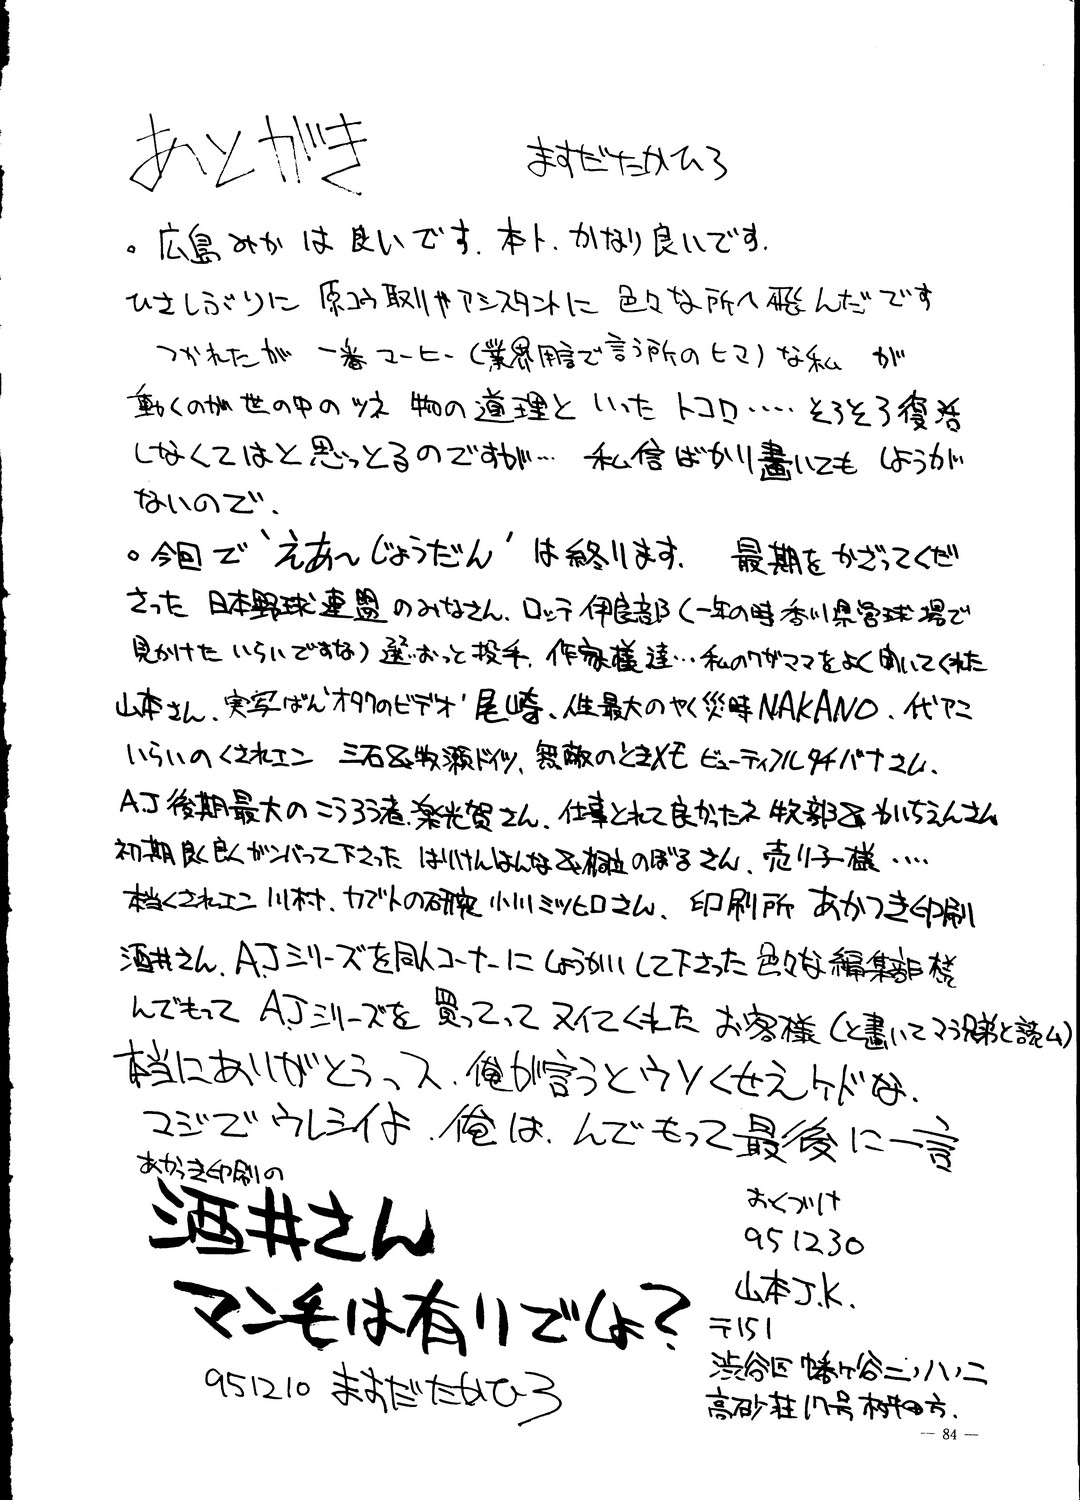 あとがき
ますだたかひろ
。広島みかは良いです、本ト、かなり良いです、
ひさしぶりに 原コウ取りやアシスタントに 色々な所へ飛んだです
つかれたが 一番コーヒー(業界用言で言う所のヒマ)な私 が
動くのが世の中のツネ 物の道理と いった トコロ・・・・そろそろ復活
しなくてはと思っとるのですが… 私信ばかり書いても しょうが
ないので、
。今回で‘えあ〜じょうだん’は終ります. 最期をかざってくだ
さった 日本野球連盟のみなさん、ロッテ伊良部(一年の時香川県営球場で
見かけたいらいですな)選、おっと投手、作家様達…私のワガママをよく聞いてくれた
山本さん、実写ばん‘オタクのビデオ’尾崎、人生最大のやく災時NAKANO、代アニ
いらいのくされエン 三石&牧瀬ドイツ、無敵のときメモ ビューティフルタチバナさん、
A.J後期最大のこうろう者、楽光賀さん、仕事とれて良かったネ 牧部& かいちえんさん
初期良く良くガンバって下さった はりけんはんな& 桐立のぼるさん、売り子様・・・・
本当くされエン 川村、カブトの研究 小川ミツヒロさん、印刷所 あかつき印刷
酒井さん、A.Jシリーズを同人コーナーに しょうかいして下さった 色々な編集部様
んでもって A.Jシリーズを 買ってって ヌイてくれた お客様(と書いてマラ兄弟と読ム)
本当にありがとうっス、俺が言うとウソくせえケドな、
マジでウレシイよ、俺は、んでもって最後に一言
あかつき印刷の
酒井さん
マン毛は有りでしょ?
951210 ますだたかひろ
おくづけ
951230
山本J.K.
〒151
渋谷区 幡ヶ谷二ノ八ノ二
高砂荘17号 村田方、
— 84 —